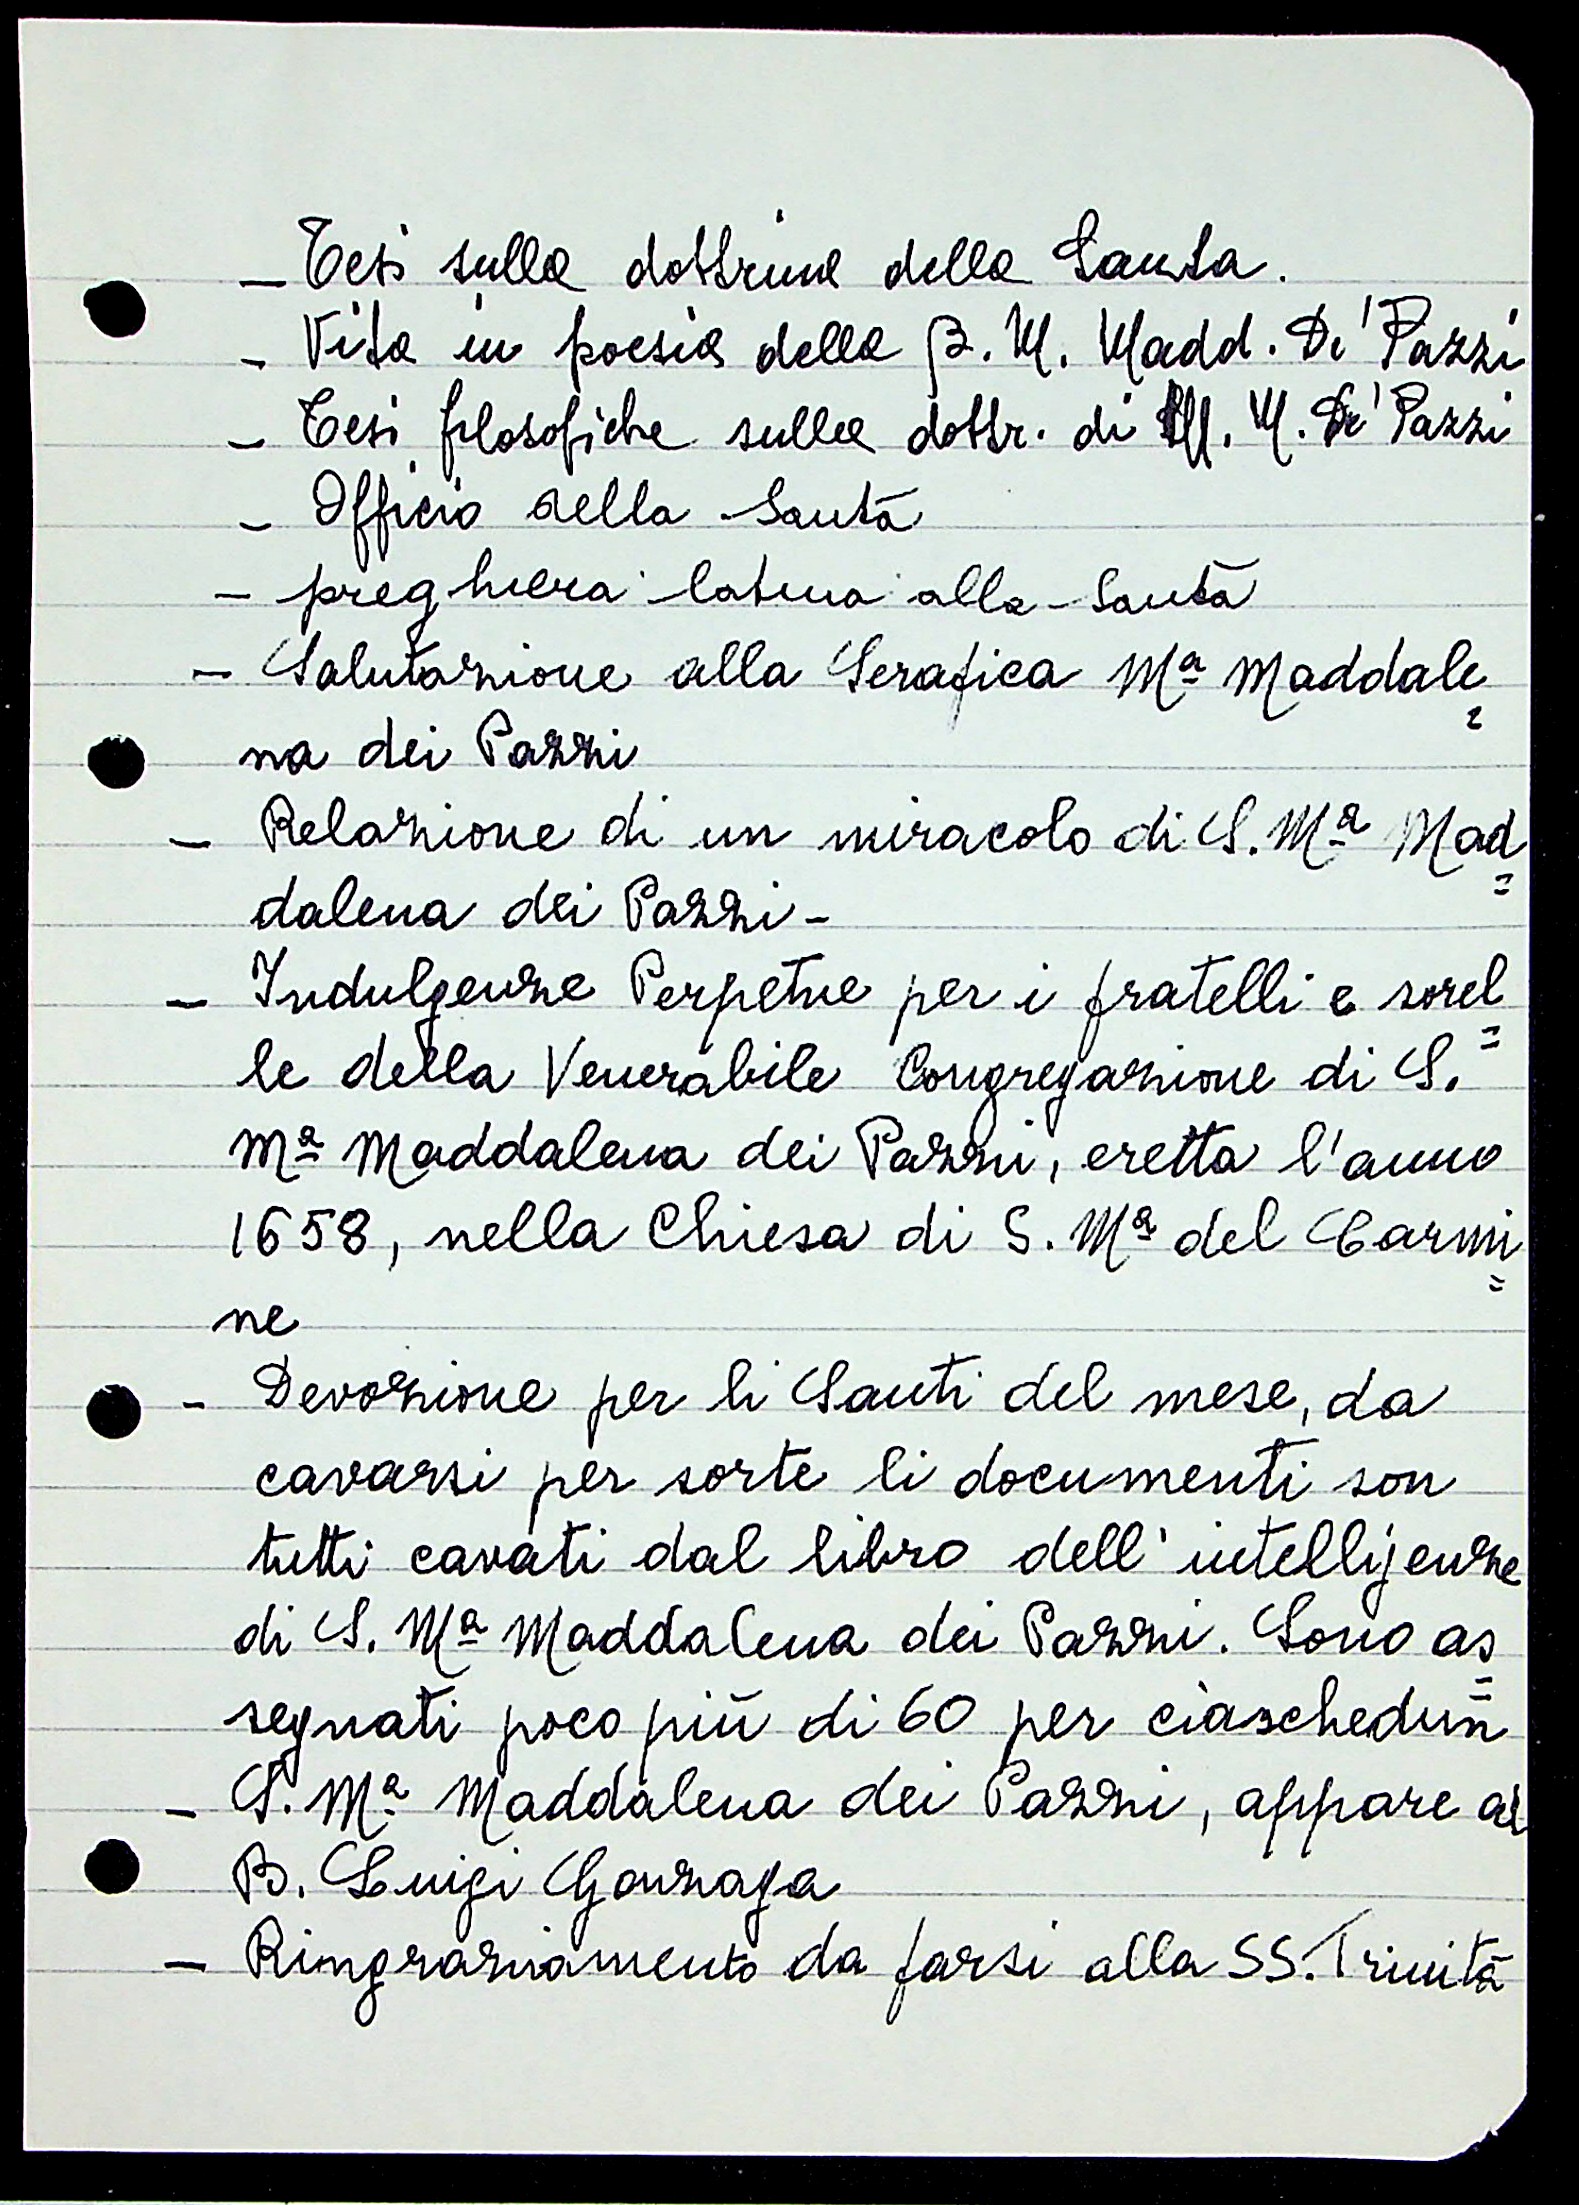 – Tesi sulla dottrina della Santa.
– Vita in poesia della B. M. Madd. De' Pazzi
– Tesi filosofiche sulla dottr. di M. M. De' Pazzi
– Officio della Santa
– preghiera latina alla Santa
– Salutazione alla Serafica Mª Maddale=
na dei Pazzi
– Relazione di un miracolo di S. Mª Mad=
dalena dei Pazzi –
– Indulgenze Perpetue per i fratelli e sorel=
le della Venerabile Congregazione di S.
Mª Maddalena dei Pazzi, eretta l'anno
1658, nella Chiesa di S. Mª del Carmi=
ne
– Devozione per li Santi del mese, da
cavarsi per sorte li documenti son
tutti cavati dal libro dell'intelligenze
di S. Mª Maddalena dei Pazzi. Sono as=
segnati poco più di 60 per ciaschedun
– S. Mª Maddalena dei Pazzi, appare al
B. Luigi Gonzaga
– Ringraziamento da farsi alla SS. Trinità